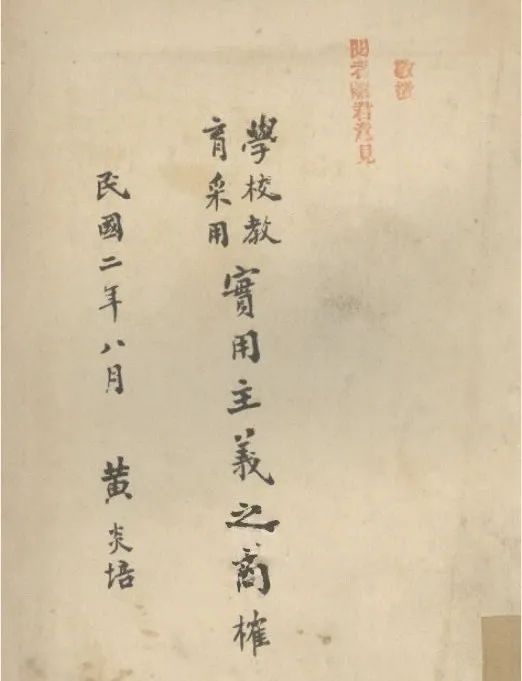 敬徵
閱者諸君意見
學校教
育采用
實用主義之商榷
民國二年八月　黃炎培